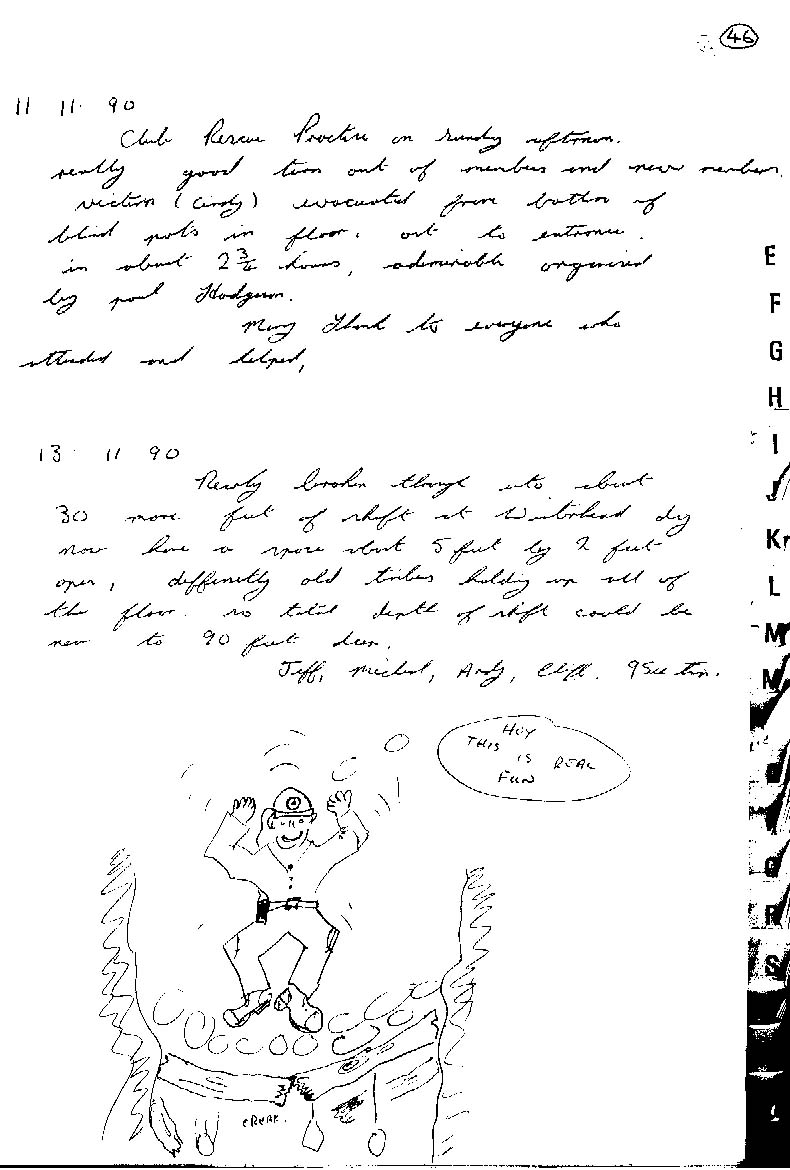 46
11 11. 90
Club Rescue Practise on Sunday afternoon.
really good turn out of members and new members.
victim (Cindy) evacuated from bottom of
blind pots in floor. out to entrance.
in about 2 3/4 hours, admirable organised
by paul Hodgson.
Many Thank to everyone who
attended and helped,
13 11 90
Newly broken through into about
30 more feet of shaft at Winterhead dig
now have a space about 5 feet by 2 feet
open, deffinetly old timber holding up all of
the floor. so total depth of shaft could be
near to 90 feet deep.
Jeff, Michael, Andy, Cliff.
HEY
THIS IS REAL
FUN
CREAK.
E
F
G
H
I
J
K
L
M
N
Q
R
S